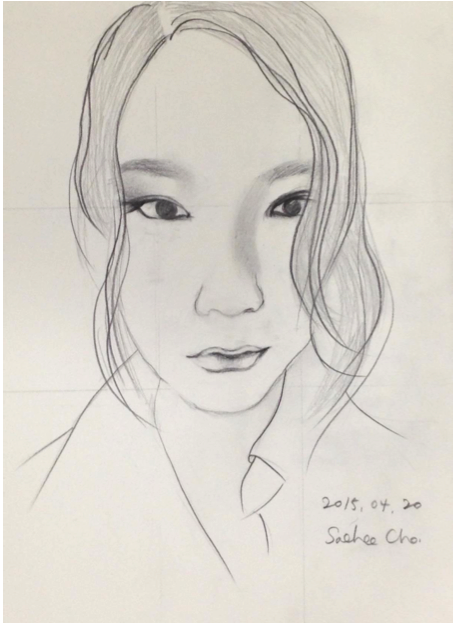 2015. 04. 20
Saehee Cho.